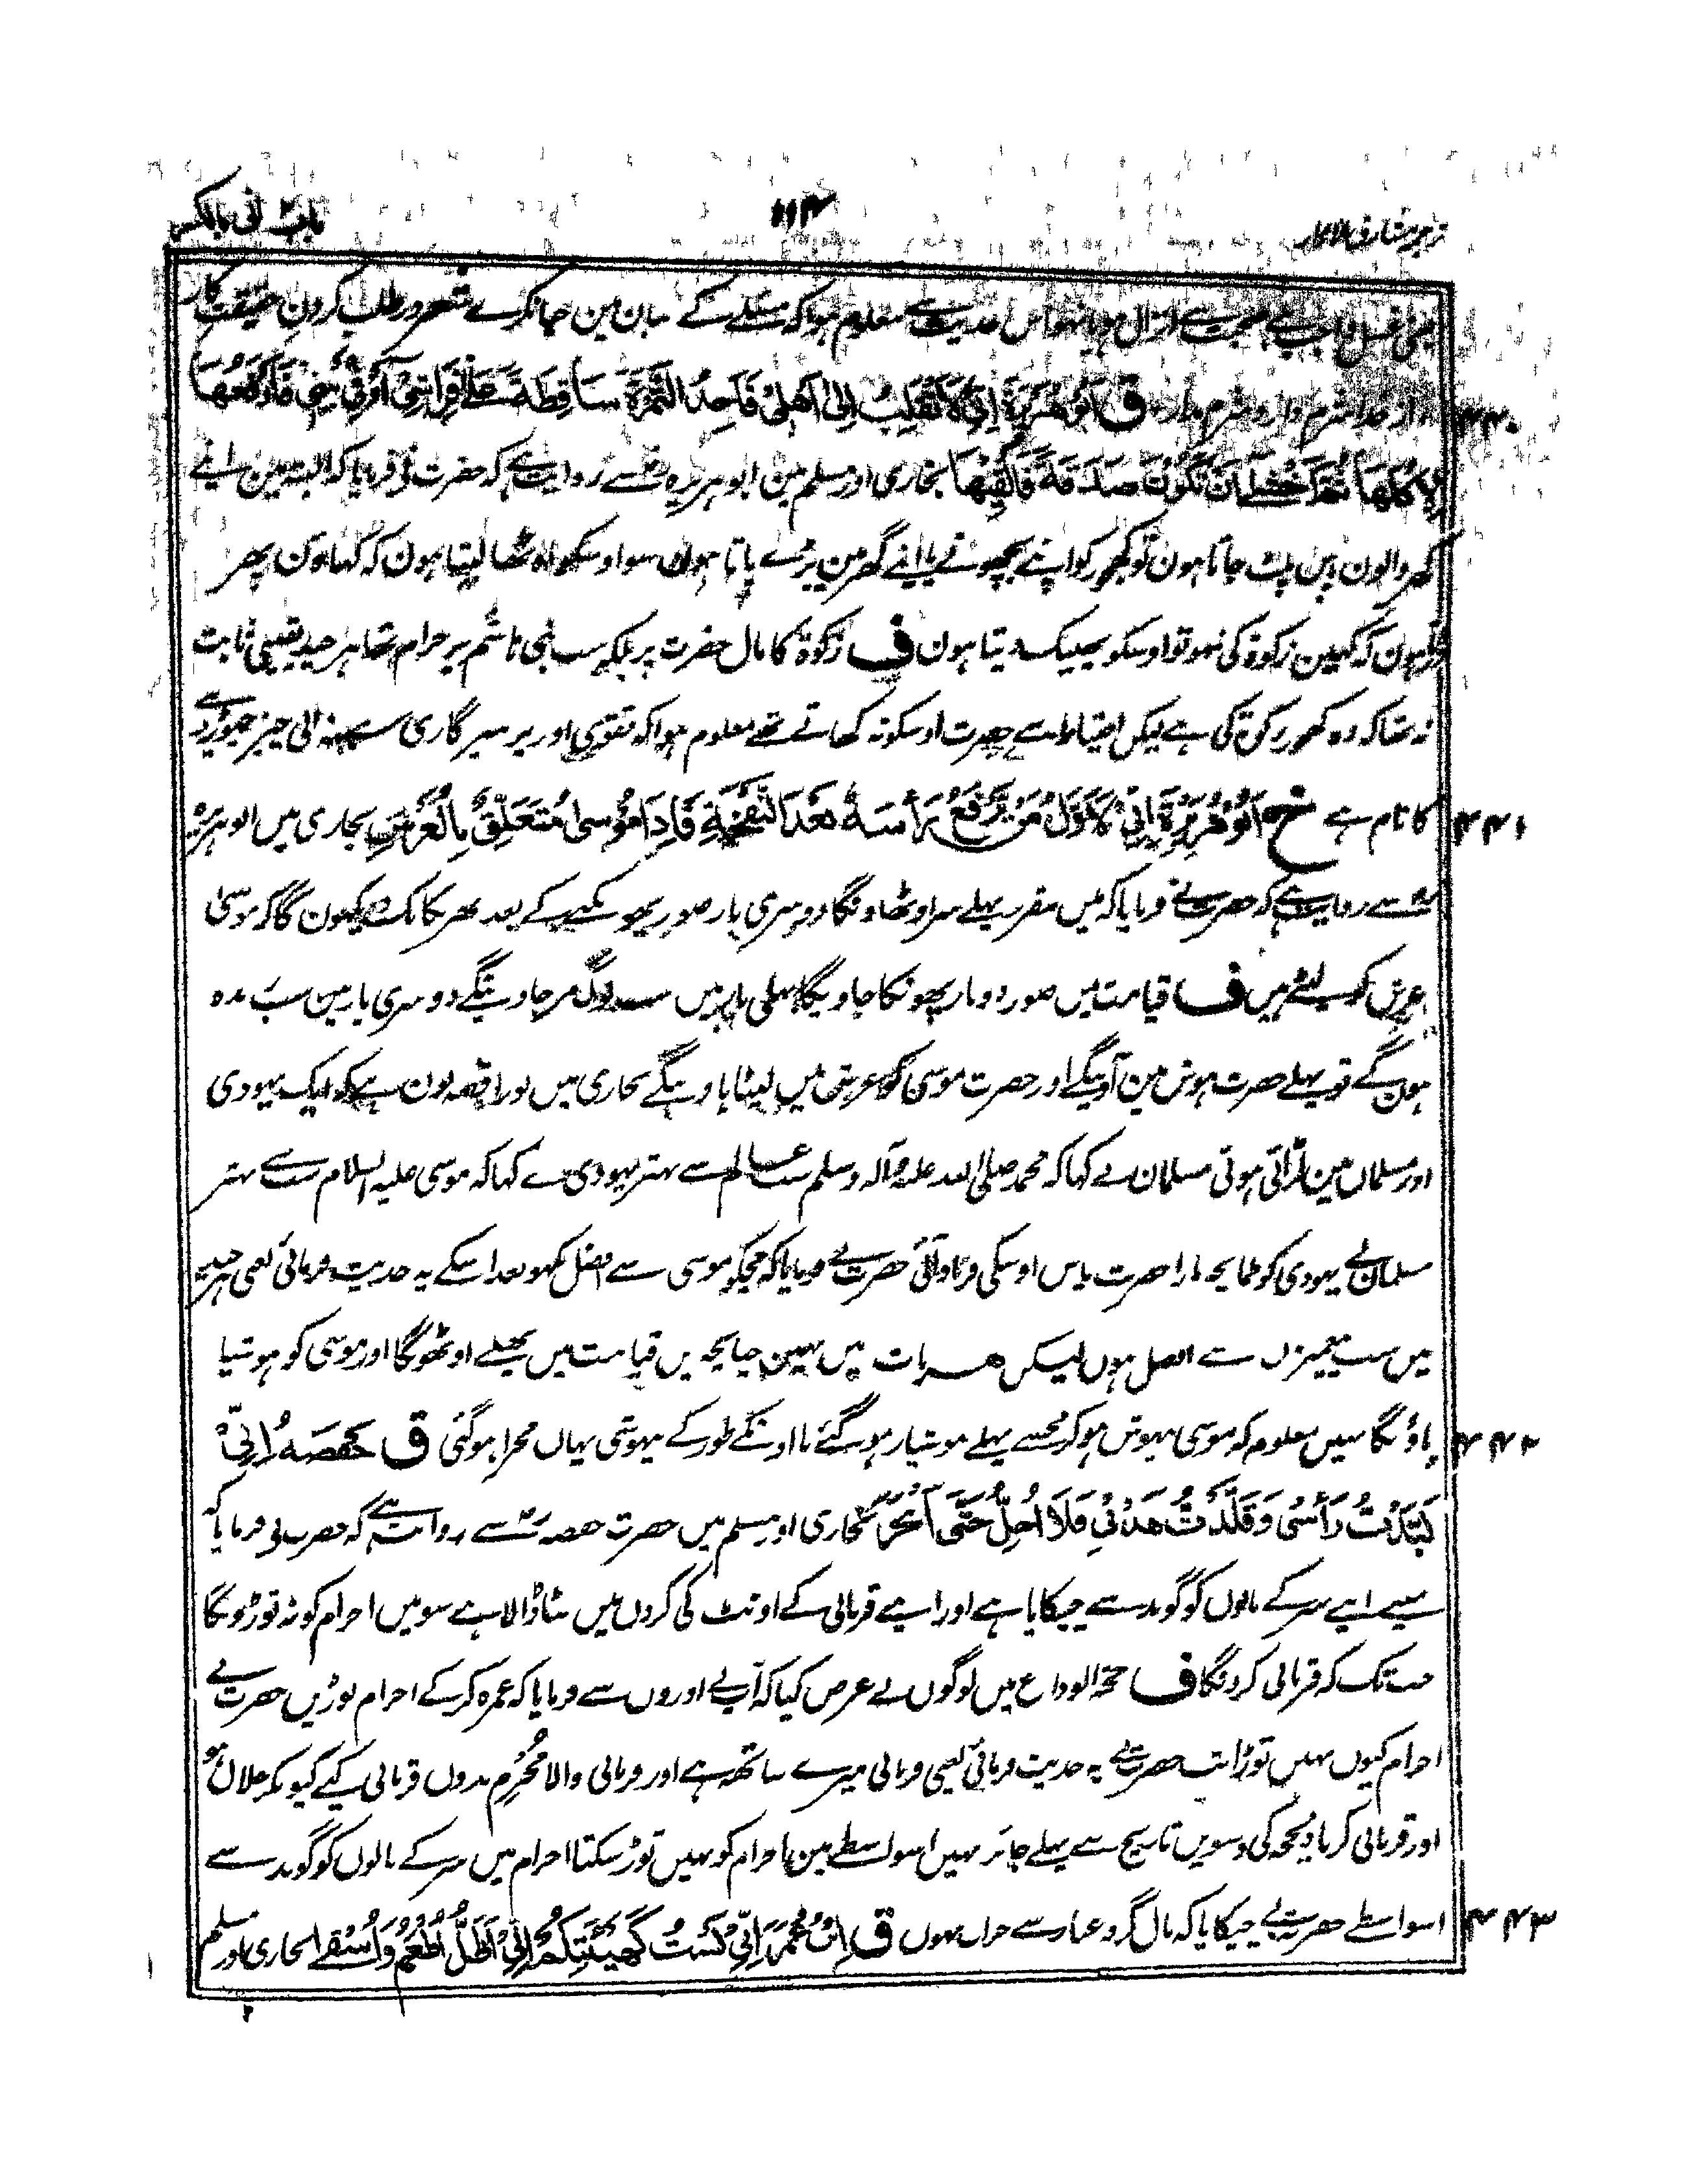 باب ثانی بالکسر
۱۱۴
ترجمہ مشارق الانوار
اس حدیث سے معلوم ہوا کہ مسئلے کے بیان مین حیا نکرے شعر در طلب کردن حقیقت کار
از خدا شرم دار و شرم مدار ق اَبُو هُرَيْرَةَ اِنِّي لَاَنْقَلِبُ اِلٰى اَهْلِيْ فَاَجِدُ التَّمْرَةَ سَاقِطَةً عَلٰى فِرَاشِيْ اَوْ فِيْ بَيْتِيْ فَاَرْفَعُهَا
۴۴۰
لِاٰكُلَهَا ثُمَّ اَخْشٰى اَنْ تَكُوْنَ صَدَقَةً فَاُلْقِيْهَا بخاری اور مسلم مین ابو ہریرہ رض سے روایت ہے کہ حضرت نے فرمایا کہ البتہ مین اپنے
گھر والون پاس پلٹ جاتا ہون تو کھجور کو اپنے بچھونے پر یا اپنے گھر مین پڑے پاتا ہون سو اوسکو اوٹھا لیتا ہون کہ کھاون پھر
ڈرتا ہون کہ کہین زکوة کی نہو تو اوسکو پھینک دیتا ہون ف زکوة کا مال حضرت پر بلکہ سب بنی ہاشم پر حرام تھا ہر چند یقینی ثابت
نہ تھا کہ وہ کھجور زکوة کی ہے لیکن احتیاط سے حضرت اوسکو نہ کھاتے تھے معلوم ہوا کہ تقوی اور پرہیزگاری شبہہ والی چیز چھوڑ دینے
کا نام ہے خ اَبُو هُرَيْرَةَ اِنِّيْ لَاَوَّلُ مَنْ يَرْفَعُ رَأْسَهٗ بَعْدَ النَّفْخَةِ فَاِذَا مُوْسٰى مُتَعَلِّقٌ بِالْعَرْشِ بخاری میں ابو ہریرہ
۴۴۱
رض سے روایت ہے کہ حضرت نے فرمایا کہ میں مقرر پہلے سر اوٹھاونگا دوسری بار صور پھونکنے کے بعد پھر یکایک دیکھون گا کہ موسیٰ
عرش کو لپٹے ہیں ف قیامت میں صور دو بار پھونکا جاویگا پہلی بار میں سب لوگ مرجاوینگے دوسری بار مین سب زندہ
ہون گے تو پہلے حضرت ہوش مین آوینگے اور حضرت موسی کو عرش میں لپٹا پاوینگے بخاری میں پورا قصہ یون ہے کہ ایک یہودی
اور مسلمان مین لڑائی ہوئی مسلمان نے کہا کہ محمد صلی اللہ علیہ وآلہ وسلم سب عالم سے بہتر یہودی نے کہا کہ موسی علیہ السلام سب سے بہتر
مسلمان نے یہودی کو طمانچہ مارا حضرت پاس اوسکی فریاد آئی حضرت نے فرمایا کہ مجکو موسی سے افضل نکہو بعد اسکے یہ حدیث فرمائی یعنی ہرچند
میں سب پیغمبروں سے افضل ہوں لیکن ہر بات میں نہین چنانچہ میں قیامت میں پہلے اوٹھونگا اور موسی کو ہوشیا
پاؤنگا نہیں معلوم کہ موسی بیہوش ہو کر مجھسے پہلے ہوشیار ہو گئے یا اونکے طور کے بیہوشی یہاں مجرا ہو گئی ق حَفْصَةُ اِنِّيْ
۴۴۲
لَبَّدْتُ رَأْسِيْ وَقَلَّدْتُ هَدْيِيْ فَلَا اُحِلُّ حَتّٰى اَنْحَرَ بخاری اور مسلم میں حضرت حفصہ رض سے روایت ہے کہ حضرت نے فرمایا کہ
میںنے اپنے سر کے بالوں کو گوند سے چپکایا ہے اور اپنے قربانی کے اونٹ کی گردن میں پٹا ڈالا ہے سو میں احرام کو نہ توڑونگا
جب تک کہ قربانی کرونگا ف حجۃ الوداع میں لوگوں نے عرض کیا کہ آپنے اوروں سے فرمایا کہ عمرہ کرکے احرام توڑیں حضرت نے
احرام کیوں نہیں توڑا تب حضرت نے یہ حدیث فرمائی یعنی قربانی میرے ساتھ ہے اور قربانی والا محرم بدوں قربانی کیے کیونکر حلال ہو
اور قربانی کرنا ذیحجہ کی دسویں تاریخ سے پہلے جائز نہیں اسواسطے مین احرام کو نہیں توڑ سکتا احرام میں سر کے بالوں کو گوند سے
اسواسطے حضرت نے چپکایا کہ بال گرد و غبار سے خراب نہوں ق اِبْنُ عُمَرَ اِنِّيْ لَسْتُ كَهَيْئَتِكُمْ اِنِّيْ اَظَلُّ اُطْعَمُ وَاُسْقٰى بخاری اور مسلم
۴۴۳